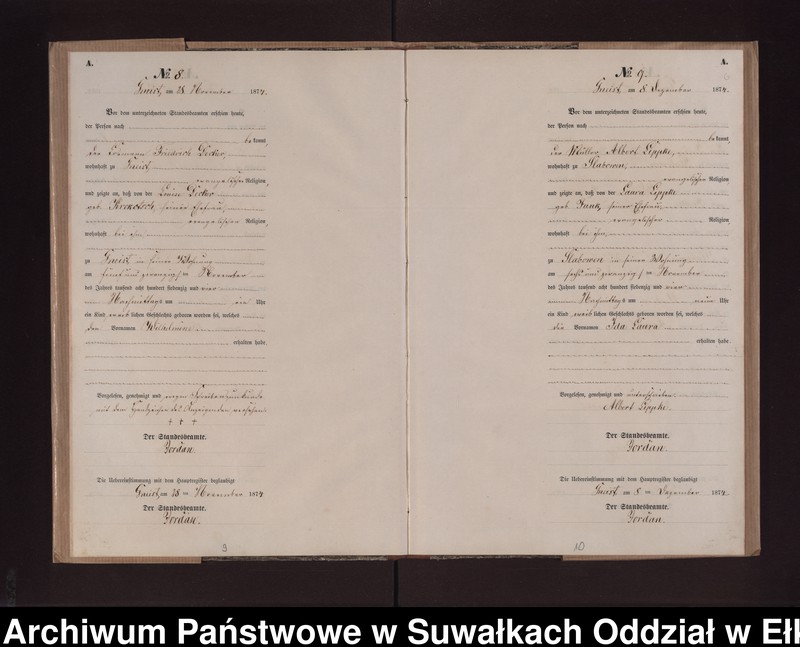 A.
No 8.
Gneist, am 28 November 1874.
Vor dem unterzeichneten Standesbeamten erschien heute,
der Person nach
bekannt,
der Losmann Friedrich
wohnhaft zu Gneist
evangelischer Religion,
und zeigte an, daß von der Louise
geb. seiner Ehefrau,
evangelischer Religion,
wohnhaft bei ihm,
zu Gneist in seiner Wohnung
am fünf und zwanzigsten November
des Jahres tausend acht hundert siebenzig und vier
Nachmittags um ein Uhr
ein Kind weiblichen Geschlechts geboren worden sei, welches
den Vornamen Wilhelmine
erhalten habe.
Vorgelesen, genehmigt und wegen Schreibensunkunde
mit dem Handzeichen des Anzeigenden versehen
+ + +
Der Standesbeamte.
Jordan.
Die Uebereinstimmung mit dem Hauptregister beglaubigt
Gneist, am 28 ten November 1874
Der Standesbeamte.
Jordan.
9
A.
No 9.
Gneist, am 8 Dezember 1874.
Vor dem unterzeichneten Standesbeamten erschien heute,
der Person nach
bekannt,
der Müller Albert Lippki,
wohnhaft zu Slabowen,
evangelischer Religion,
und zeigte an, daß von der Laura Lippki
geb. Funk, seiner Ehefrau,
evangelischer Religion,
wohnhaft bei ihm,
zu Slabowen in seiner Wohnung
am sechs und zwanzigsten November
des Jahres tausend acht hundert siebenzig und vier
Nachmittags um neun Uhr
ein Kind weiblichen Geschlechts geboren worden sei, welches
die Vornamen Ida Laura
erhalten habe.
Vorgelesen, genehmigt und unterschrieben
Albert Lippki
Der Standesbeamte.
Jordan.
Die Uebereinstimmung mit dem Hauptregister beglaubigt
Gneist, am 8 ten Dezember 1874.
Der Standesbeamte.
Jordan.
10
Archiwum Państwowe w Suwałkach Oddział w Ełk